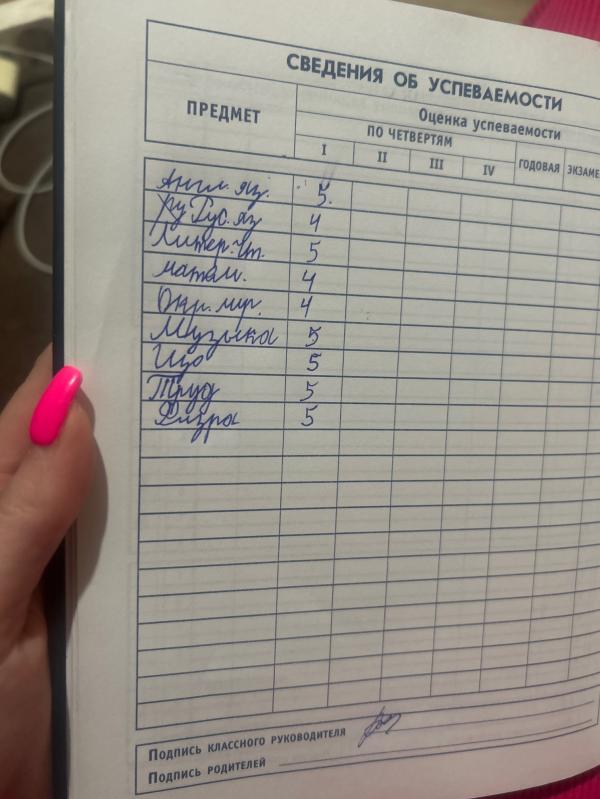 СВЕДЕНИЯ ОБ УСПЕВАЕМОСТИ
ПРЕДМЕТ
Оценка успеваемости
ПО ЧЕТВЕРТЯМ
I II III IV ГОДОВАЯ ЭКЗАМЕ
Англ. яз. 5.
Рус. яз 4
Литер. чт. 5
матем. 4
Окр. мир. 4
Музыка 5
Изо 5
Труд 5
Физра 5
Подпись классного руководителя
Подпись родителей